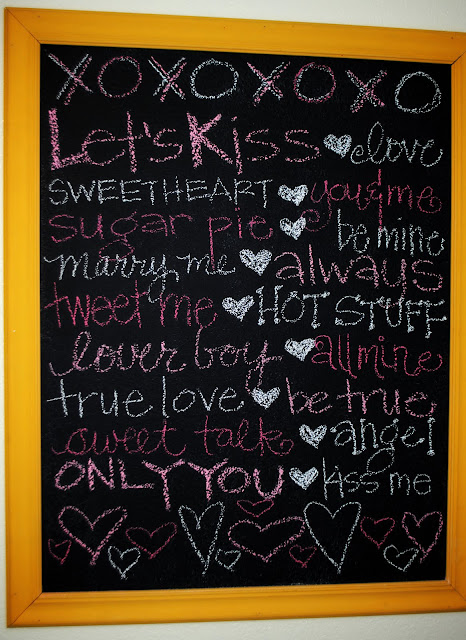 XOXOXOXO
Let's Kiss love
SWEETHEART you & me
sugar pie be mine
marry me always
tweet me HOT STUFF
lover boy all mine
true love be true
sweet talk angel
ONLY YOU kiss me